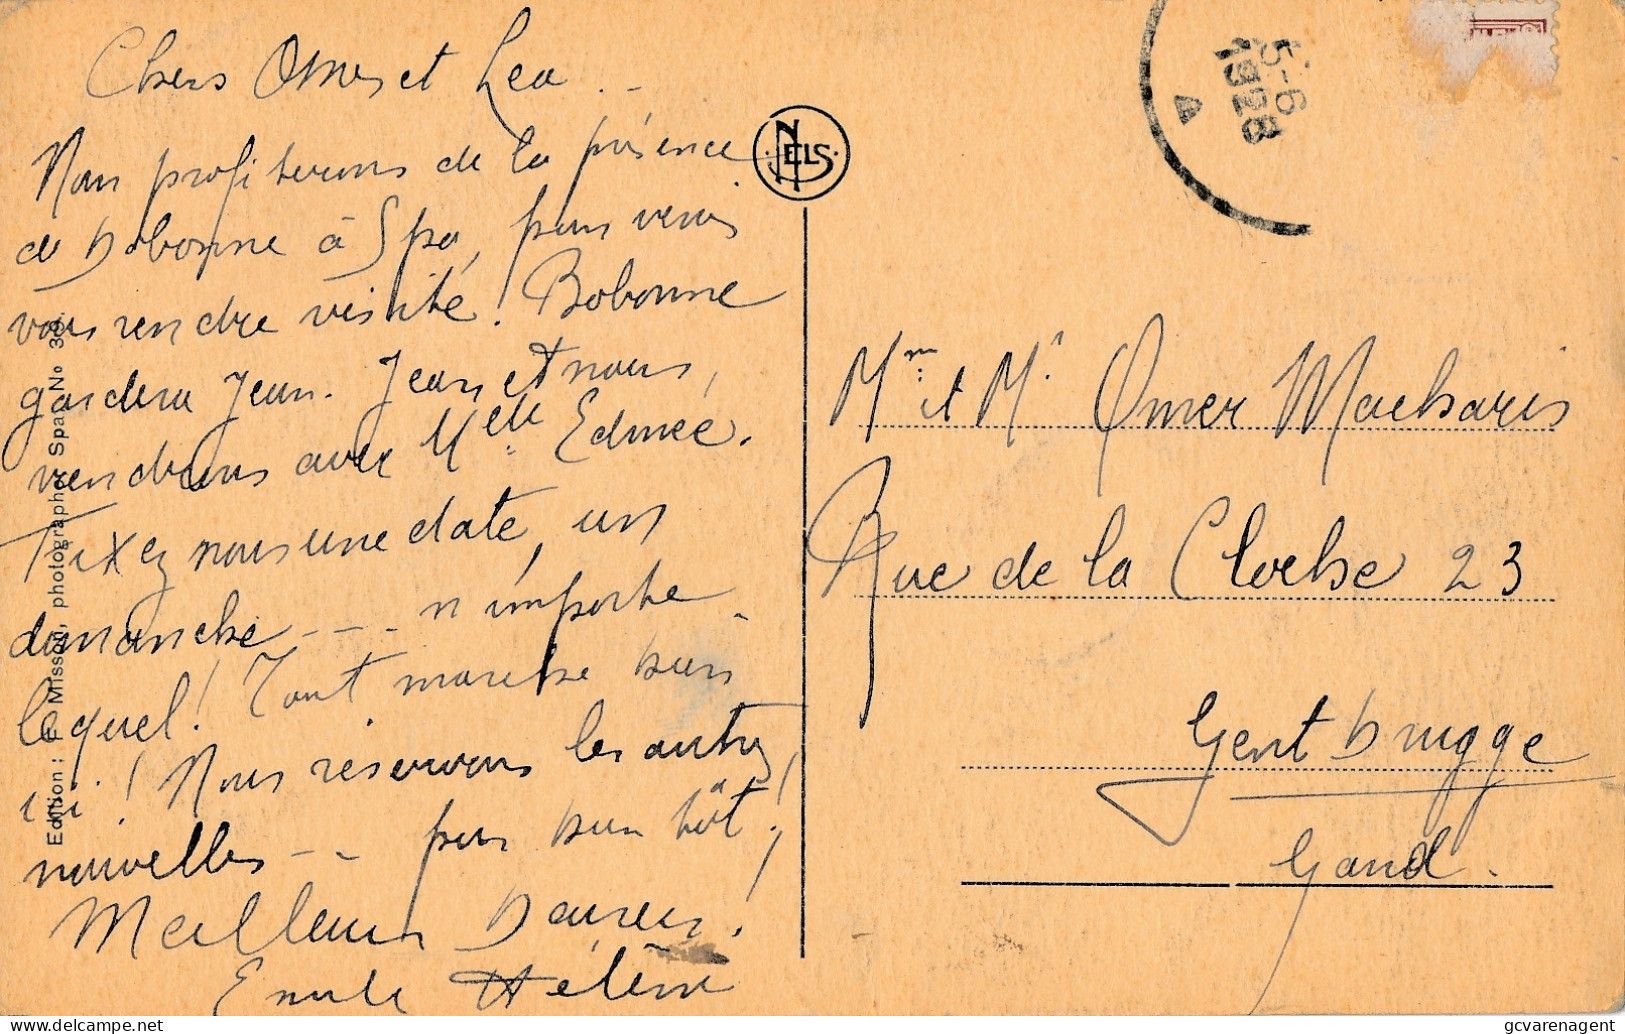 Chers Omer et Léa ..
Nous profiterons de la présence
de Bobonne à Spa, pour venir
vous rendre visite ! Bobonne
gardera Jean. Jean et nous,
viendrons avec Melle Edmée.
Fixez nous une date, un
dimanche - - - n'importe
lequel ! Tout marche bien
ici ! Nous réservons les autres
nouvelles - - pour bien tôt !
Meilleurs Baisers !
Emile Hélène
Edition : F. Misson, photographe, Spa. No
NELS
5-6
1928
Mme et Mr Omer Macharis
Rue de la Cloche 23
Gentbrugge
Gand.
gcvarenagent